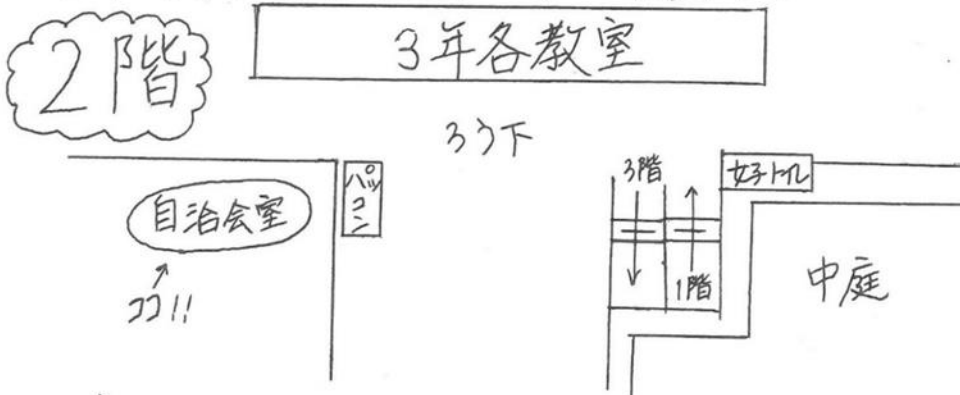 2階
3年各教室
ろう下
自治会室
ココ!!
パソコン
3階
1階
女子トイレ
中庭